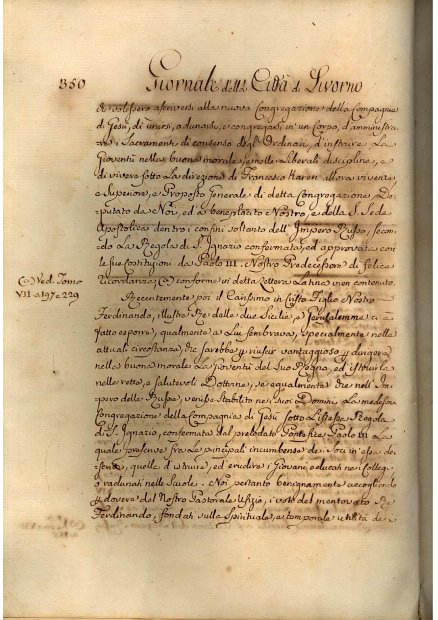 350 Giornale della Città di Livorno
si volessero ascriversi alla nuova Congregazione della Compagnia
di Gesù, di unirsi, adunarsi, e congregarsi in un Corpo, d'amministra-
re i Sacramenti di consenso degl'Ordinari, d'instruire La
Gioventù nella buona morale, e nelle Liberali discipline, e
di vivere sotto La direzione di Francesco Karen allora vivente,
e Superiore, e Proposto Generale di detta Congregazione De-
putato da Noi, ed a beneplacito Nostro, e della S. Sede
Apostolica dentro i confini soltanto dell'Impero Russo, secon-
do La Regola di S. Ignazio confermata, ed approvata con
le sue Costituzioni da Paolo III. Nostro Predecessore di felice
ricordanza, (a) conforme in detta Lettera Latina vien contenuto.
(a) Ved. Tomo
VII a 197 e 229
Recentemente poi il Carissimo in Cristo Figlio Nostro
Ferdinando, illustre Re delle due Sicilie, e Jerusalemme ci à
fatto esporre, qualmente a Lui sembrava, specialmente nelle
attuali circostanze, che sarebbe riuscir vantaggioso
nella buona morale La Gioventù del Suo Regno, ed istruirla
nelle rette, e salutevoli Dottrine, se egualmente che nell'Im-
pero delle Russie, venisse stabilito nei suoi Domini La medesima
Congregazione della Compagnia di Gesù sotto L'istessa Regola
di S. Ignazio, confermata dal prelodato Pontefice Paolo III La
quale prescrive fra Le principali incumbenze dei Soci in essa
quelle d'istruire, ed erudire i Giovani educati nei Collegi
o radunati nelle Scuole. Noi pertanto benignamente accogliendo
dovere del Nostro Pastorale Ufizio, i voti del mentovato Re
Ferdinando, fondati sulla Spirituale, e temporale utilità de-